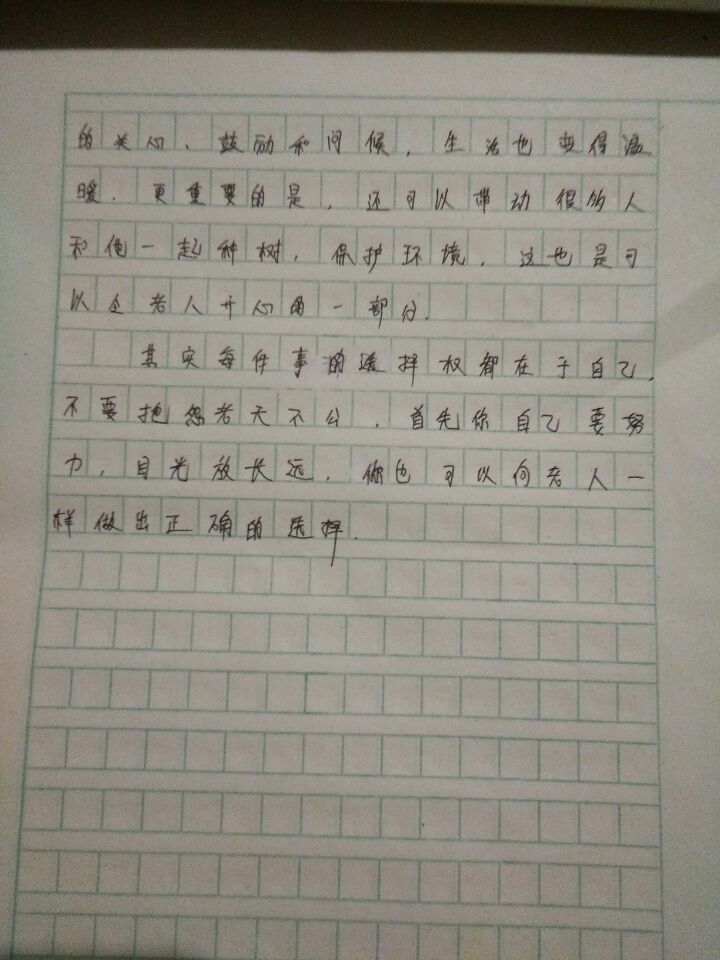 的关心、鼓励和问候，生活也变得温
暖．更重要的是，还可以带动很多人
和他一起种树，保护环境．这也是可
以令老人开心的一部分．
其实每件事的选择权都在于自己，
不要抱怨老天不公，首先你自己要努
力，目光放长远．你也可以向老人一
样做出正确的选择．